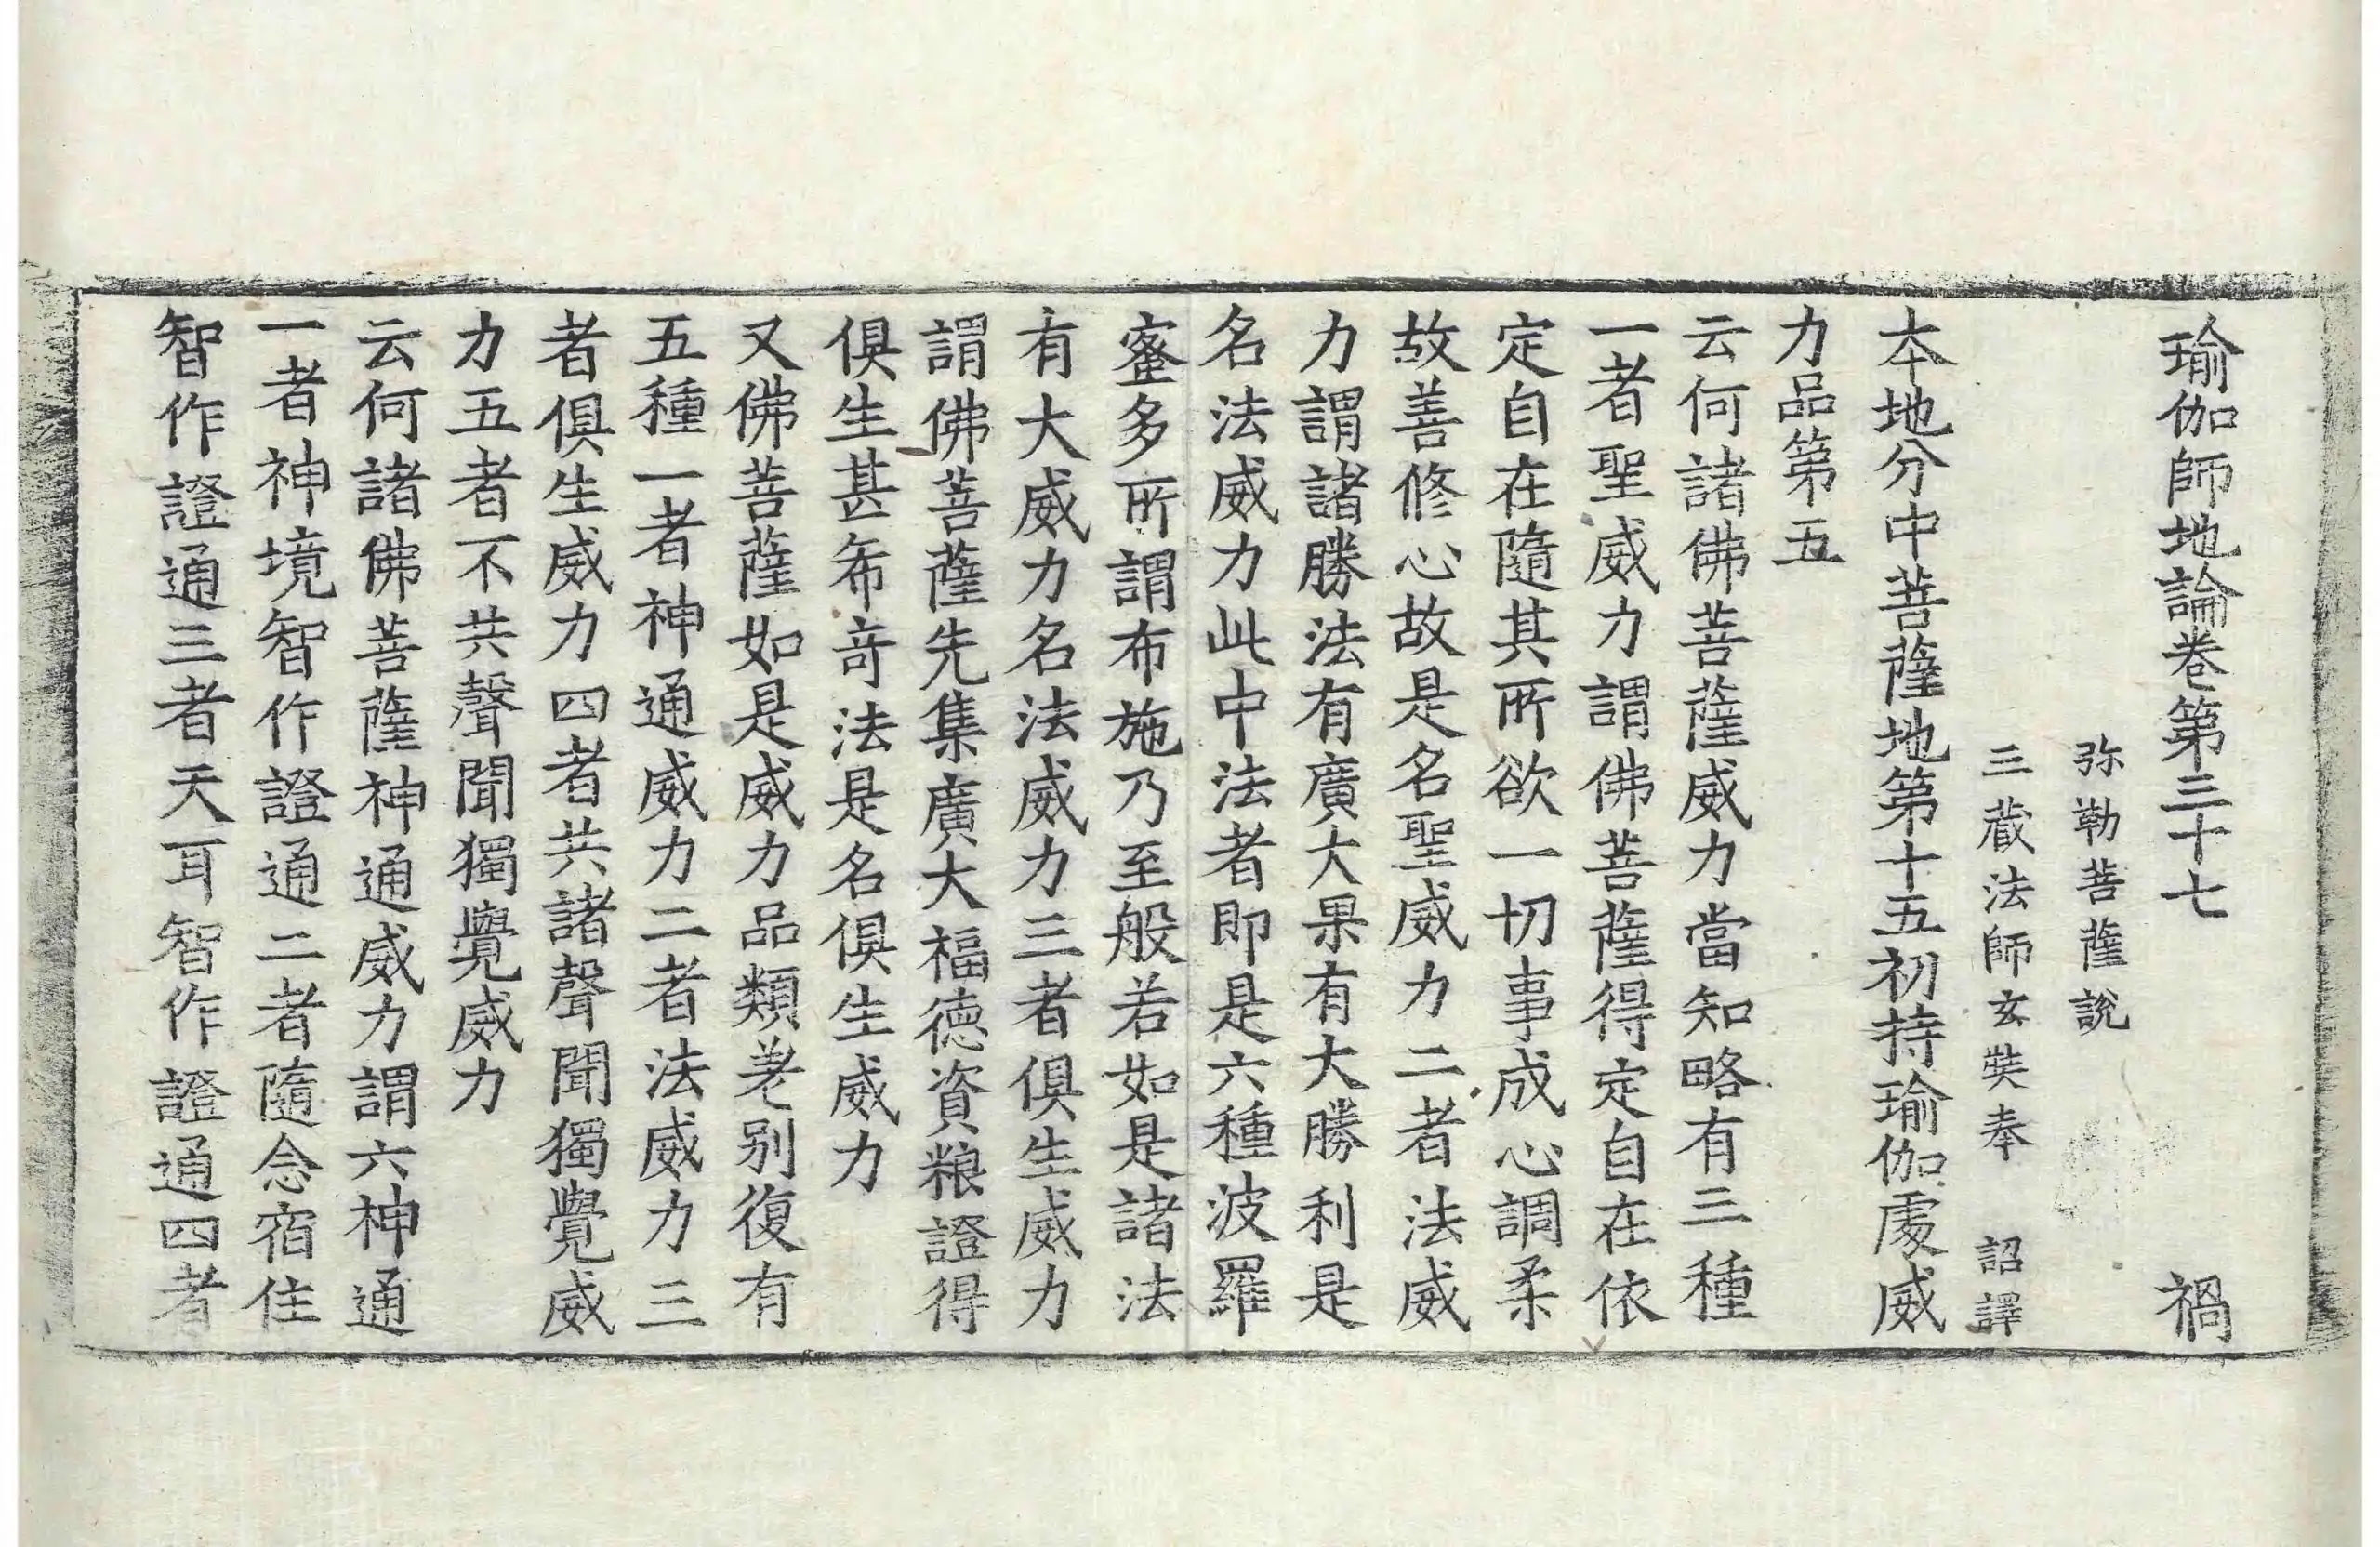 瑜伽師地論卷第三十七 禍
弥勒菩薩說
三蔵法師玄奘奉 詔譯
本地分中菩薩地第十五初持瑜伽處威
力品第五
云何諸佛菩薩威力當知略有三種
一者聖威力謂佛菩薩得定自在依
定自在隨其所欲一切事成心調柔
故善修心故是名聖威力二者法威
力謂諸勝法有廣大果有大勝利是
名法威力此中法者即是六種波羅
蜜多所謂布施乃至般若如是諸法
有大威力名法威力三者俱生威力
謂佛菩薩先集廣大福德資粮證得
俱生甚希奇法是名俱生威力
又佛菩薩如是威力品類差别復有
五種一者神通威力二者法威力三
者俱生威力四者共諸聲聞獨覺威
力五者不共聲聞獨覺威力
云何諸佛菩薩神通威力謂六神通
一者神境智作證通二者隨念宿住
智作證通三者天耳智作證通四者